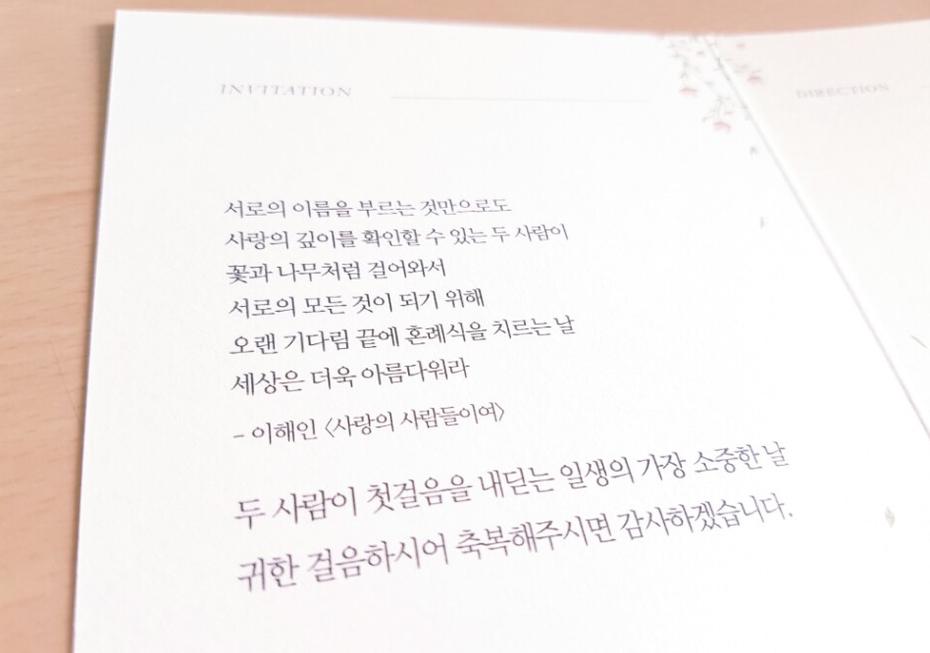 INVITATION
서로의 이름을 부르는 것만으로도
사랑의 깊이를 확인할 수 있는 두 사람이
꽃과 나무처럼 걸어와서
서로의 모든 것이 되기 위해
오랜 기다림 끝에 혼례식을 치르는 날
세상은 더욱 아름다워라
– 이해인 〈사랑의 사람들이여〉
두 사람이 첫걸음을 내딛는 일생의 가장 소중한 날
귀한 걸음하시어 축복해주시면 감사하겠습니다.
DIRECTION